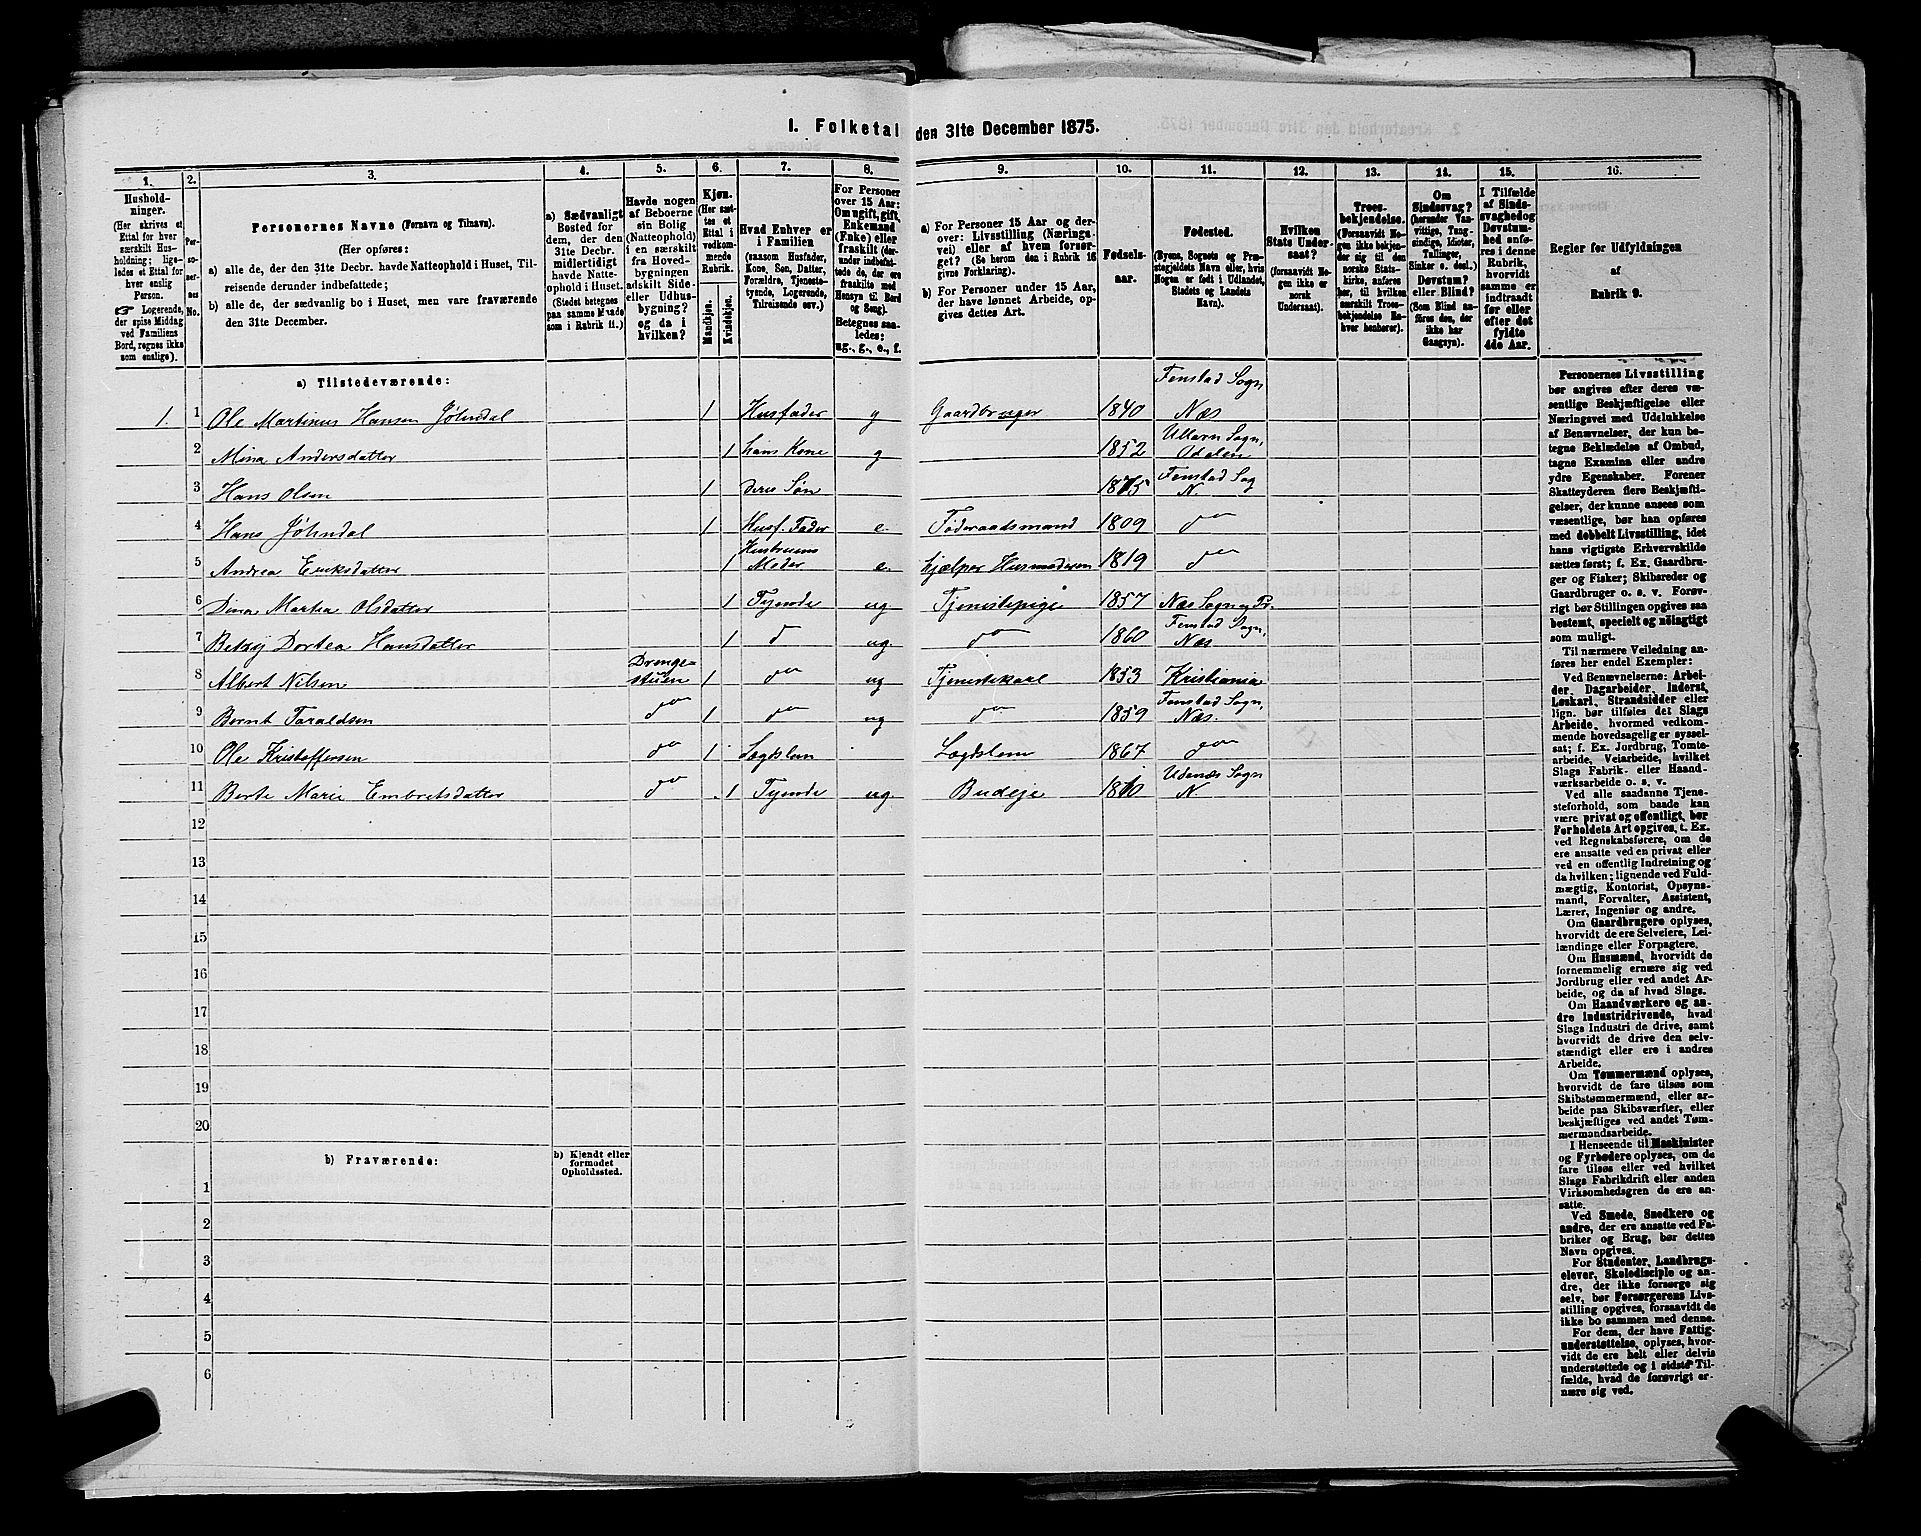 1. Folketal den 31te December 1875.
1. 2. 3. 4. 5. 6. 7. 8. 9. 10. 11. 12. 13. 14. 15. 16.
Hushold-
ninger.
(Her skrives et
Ettal for hver
særskilt Hus-
holdning; lige-
ledes et Ettal for
hver enslig
Person.
☞ Logerende,
der spise Middag
ved Familiens
Bord, regnes ikke
som enslige).
Per-
so-
ner-
nes
No.
Personernes Navne (Fornavn og Tilnavn).
(Her opføres:
a) alle de, der den 31te Decbr. havde Natteophold i Huset, Til-
reisende derunder indbefattede;
b) alle de, der sædvanlig bo i Huset, men vare fraværende
den 31te December.
a) Sædvanligt
Bosted for
dem, der den
31te Decbr.
midlertidigt
havde Natte-
ophold i Huset.
(Stedet betegnes
paa samme Maade
som i Rubrik 11.)
Havde nogen
af Beboerne
sin Bolig
(Natteophold)
i en særskilt
fra Hoved-
bygningen
adskilt Side-
eller Udhus-
bygning?
og da i
hvilken?
Kjøn.
(Her sæt-
tes et
Ettal i
vedkom-
mende
Rubrik.
Mandkjøn.
Kvindekjøn.
Hvad Enhver er
i Familien
(saasom Husfader,
Kone, Søn, Datter,
Forældre, Tjeneste-
tyende, Logerende,
Tilreisende osv.)
For Personer
over 15 Aar:
Om ugift, gift,
Enkemand
(Enke) eller
fraskilt (her-
under indbefat-
tede de, der ere
fraskilte med
Hensyn til Bord
og Seng).
Betegnes saa-
ledes:
ug., g., e., f.
a) For Personer 15 Aar og der-
over: Livsstilling (Nærings-
vei) eller af hvem forsør-
get? (Se herom den i Rubrik 16
givne Forklaring).
b) For Personer under 15 Aar,
der have lønnet Arbeide, op-
gives dettes Art.
Fødsels-
aar.
Fødested.
(Byens, Sognets og Præ-
stegjeldets Navn eller, hvis
Nogen er født i Udlandet,
Stedets og Landets
Navn).
Hvilken
Stats Under-
saat?
(forsaavidt No-
gen ikke er
norsk
Undersaat).
Troes-
bekjendelse.
(Forsaavidt No-
gen ikke bekjen-
der sig til den
norske Stats-
kirke, anføres
her, til hvilken
særskilt Troes-
bekjendelse En-
hver henhører).
Om
Sindssvag?
(herunder Van-
vittige, Tung-
sindige, Idioter,
Tullinger,
Sinker o. desl.)
Døvstum?
eller Blind?
(Som Blind an-
føres den, der
ikke har
Gangsyn).
I Tilfælde
af Sinds-
svaghed og
Døvstum-
hed anfø-
res i denne
Rubrik,
hvorvidt
samme er
indtraadt
før eller
efter det
fyldte
4de Aar.
Regler for Udfyldningen
af
Rubrik 9.
a) Tilstedeværende:
1. 1 Ole Martinus Hansen Jøhndal 1 Husfader g Gaardbruger 1840 Fenstad Sogn Næs
2 Mina Andersdatter 1 hans Kone g 1852 Ullern Sogn, Odalen
3 Hans Olsen 1 Deres Søn 1875 Fenstad Sog N.
4 Hans Jøhndal 1 Husf. Fader e. Føderaadsmand 1809 do
5 Andrea Eriksdatter 1 Hustruens Moder e. hjælper Husmoderen 1819 do
6 Dina Martea Olsdatter 1 Tyende ug Tjenestepige 1857 Næs Sogn og Pr.
7 Betzy Dortea Hansdatter 1 do ug. do 1860 Fenstad Sogn, Næs.
8 Albert Nilsen Drenge-stuen 1 do ug Tjenestekarl 1853 Kristiania
9 Bernt Taraldsen do 1 do ug do 1859 Fenstad Sogn, Næs.
10 Ole Kristoffersen do 1 Lægdslem Lægdslem 1867 do
11 Berte Marie Embretsdatter do 1 Tyende ug. Budeje 1810 Udenæs Sogn N.
12
13
14
15
16
17
18
19
20
b) Fraværende:
b) Kjendt eller
formodet
Opholdssted.
1
2
3
4
5
6
Personernes Livsstilling
bør angives efter deres væ-
sentlige Beskjæftigelse eller
Næringsvei med Udelukkelse
af Benævnelser, der kun be-
tegne Beklædelse af Ombud,
tagne Examina eller andre
ydre Egenskaber. Forener
Skatteyderen flere Beskjæfti-
gelser, der kunne ansees som
væsentlige, bør han opføres
med dobbelt Livsstilling, idet
hans vigtigste Erhvervskilde
sættes først; f. Ex. Gaardbru-
ger og Fisker; Skibsreder og
Gaardbruger o. s. v. Forøv-
rigt bør Stillingen opgives saa
bestemt, specielt og nøiagtigt
som muligt.
Til nærmere Veiledning an-
føres her endel Exempler:
Ved Benævnelserne: Arbei-
der, Dagarbeider, Inderst,
Løskarl, Strandsidder eller
lign. bør tilføies det Slags
Arbeide, hvormed vedkom-
mende hovedsagelig er syssel-
sat; f. Ex. Jordbrug, Tomte-
arbeide, Veiarbeide, hvilket
Slags Fabrik- eller Haand-
værksarbeide o. s. v.
Ved alle saadanne Tjene-
steforhold, som baade kan
være privat og offentligt, bør
Forholdets Art opgives, t. Ex.
ved Regnskabsførere, om de
ere ansatte ved en privat eller
ved en offentlig Indretning og
da hvilken; lignende ved Fuld-
mægtig, Kontorist, Opsyns-
mand, Forvalter, Assistent,
Lærer, Ingeniør og andre.
Om Gaardbrugere oplyses,
hvorvidt de ere Selveiere, Lei-
lændinge eller Forpagtere.
Om Husmænd, hvorvidt de
fornemmelig ernære sig ved
Jordbrug eller ved andet Ar-
beide, og da af hvad Slags.
Om Haandværkere og an-
dre Industridrivende, hvad
Slags Industri de drive, samt
hvorvidt de drive den selv-
stændigt eller ere i andres
Arbeide.
Om Tømmermænd oplyses,
hvorvidt de fare tilsøs som
Skibstømmermænd, eller ar-
beide paa Skibsværfter, eller
beskjæftiges ved andet Tøm-
mermandsarbeide.
I Henseende til Maskinister
og Fyrbødere oplyses, om de
fare tilsøs eller ved hvilket
Slags Fabrikdrift eller anden
Virksomhedsgren de ere an-
satte.
Ved Smede, Snedkere og
andre, der ere ansatte ved Fa-
briker og Brug, bør dettes
Navn opgives.
For Studenter, Landbrugs-
elever, Skoledisciple og an-
dre, der ikke forsørge sig
selv, bør Forsørgerens Livs-
stilling opgives, forsaavidt de
ikke bo sammen med denne.
For dem, der have Fattig-
understøttelse, oplyses, hvor-
vidt de ere helt eller delvis
understøttede og i sidste Til-
fælde, hvad de forøvrigt er-
nære sig ved.